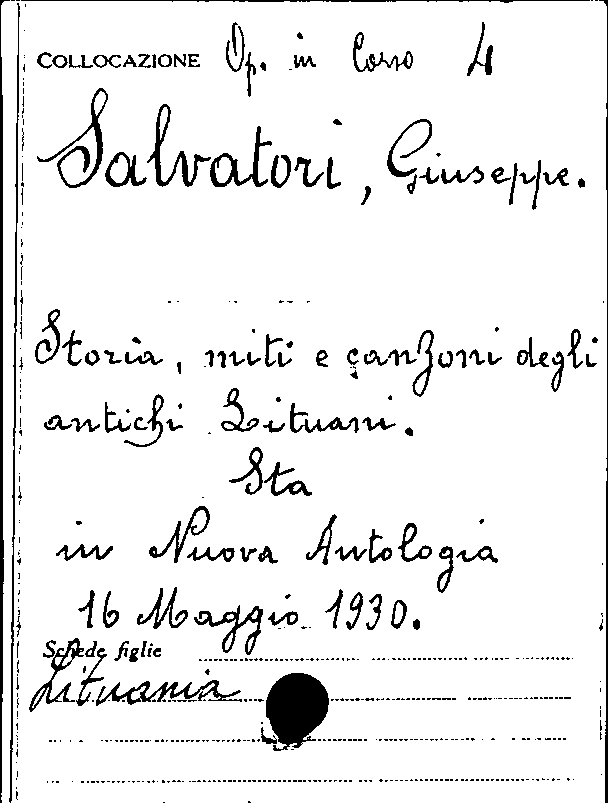 COLLOCAZIONE Op. in Corso 4
Salvatori, Giuseppe.
Storia, miti e canzoni degli
antichi Lituani.
Sta
in Nuova Antologia
16 Maggio 1930.
Schede figlie
Lituania